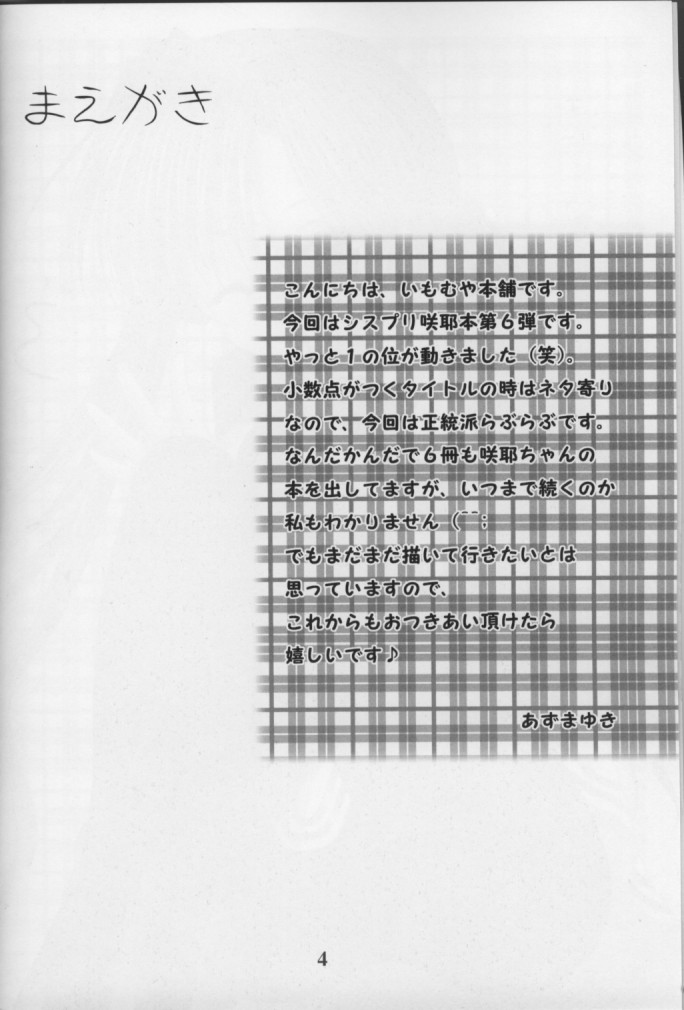 まえがき
こんにちは、いもむや本舗です。
今回はシスプリ咲耶本第６弾です。
やっと１の位が動きました（笑）。
小数点がつくタイトルの時はネタ寄り
なので、今回は正統派らぶらぶです。
なんだかんだで６冊も咲耶ちゃんの
本を出してますが、いつまで続くのか
私もわかりません（¯¯；
でもまだまだ描いて行きたいとは
思っていますので、
これからもおつきあい頂けたら
嬉しいです♪
あずまゆき
4